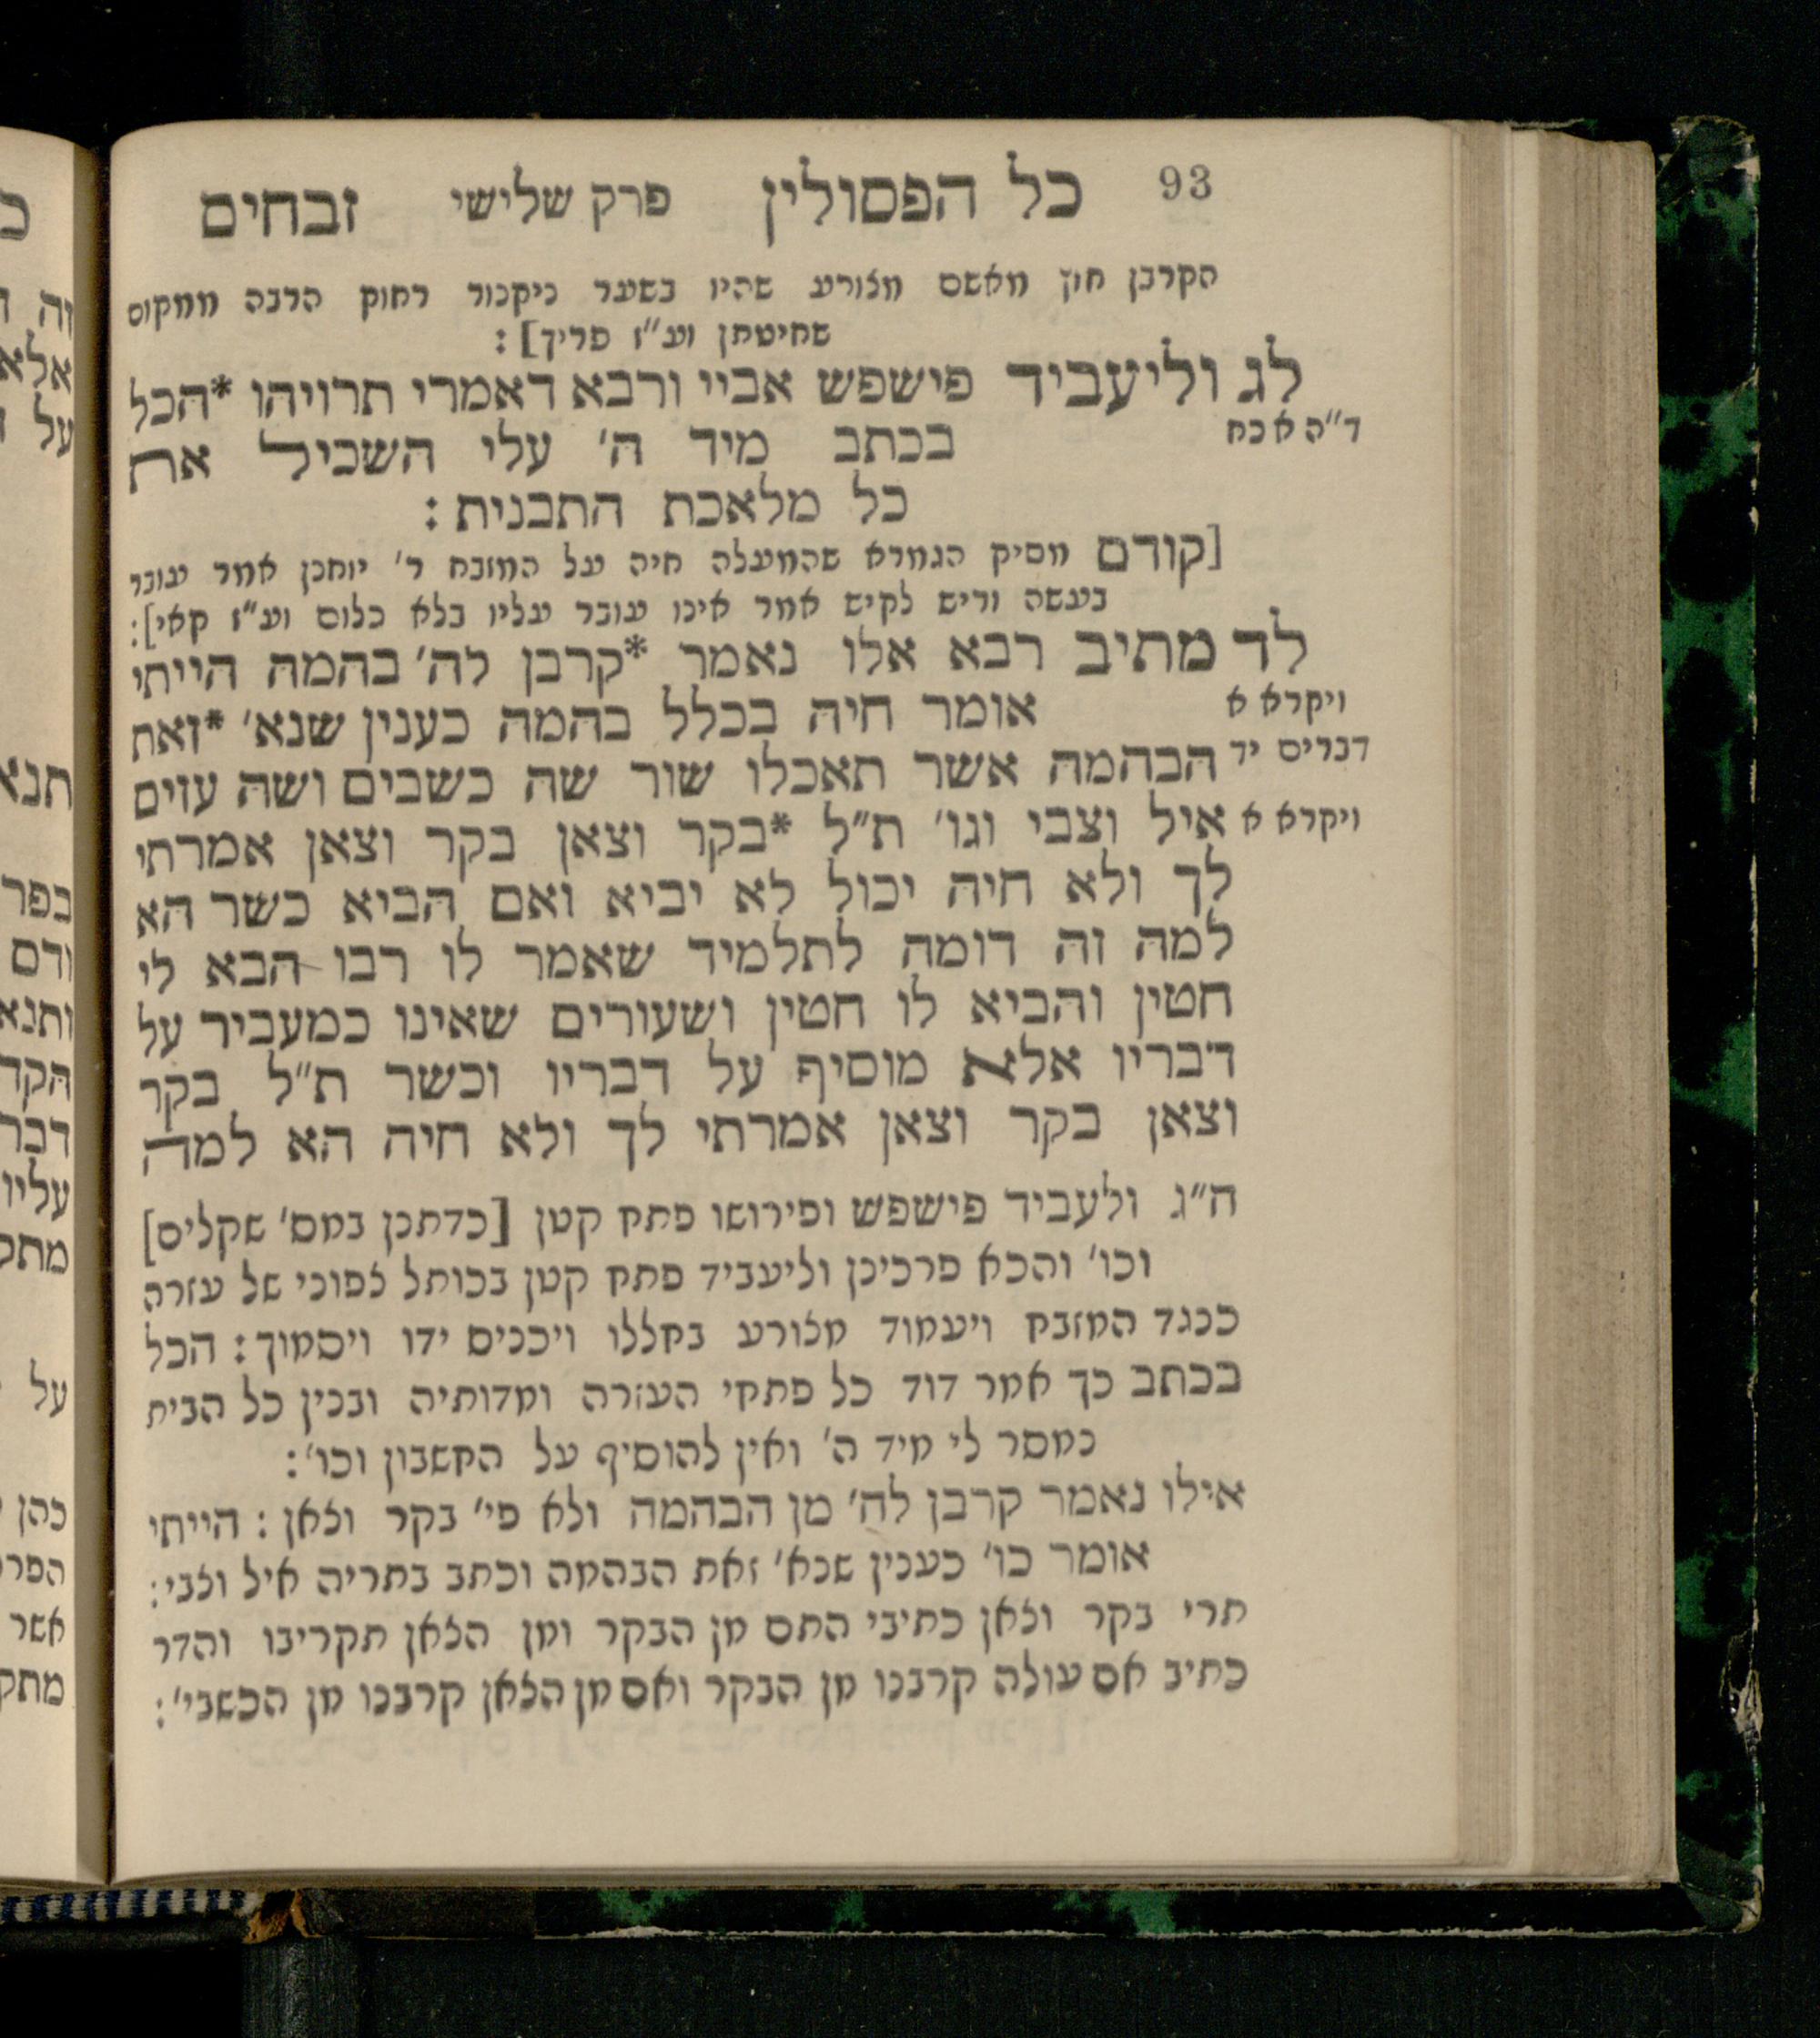 93 כל הפסולין פרק שלישי זבחים
הקרבן חוץ מאשם מצורע שהיו בשער ניקנור רחוק הרבה ממקום
שחיטתן וע"ז פריך]:
לג וליעביד פישפש אביי ורבא דאמרי תרויהו *הכל
ד"ה א כח
בכתב מיד ה' עלי השכיל את
כל מלאכת התבנית:
[קודם מסיק הגמרא שהמעלה חיה על המזבח ר' יוחנן אמר עובר
בעשה וריש לקיש אמר אינו עובר עליו בלא כלום וע"ז קאי]:
לד מתיב רבא אלו נאמר *קרבן לה' בהמה הייתי
ויקרא א
אומר חיה בכלל בהמה כענין שנא' *זאת
דברים יד
הבהמה אשר תאכלו שור שה כשבים ושה עזים
ויקרא א
איל וצבי וגו' ת"ל *בקר וצאן בקר וצאן אמרתי
לך ולא חיה יכול לא יביא ואם הביא כשר הא
למה זה דומה לתלמיד שאמר לו רבו הבא לי
חטין והביא לו חטין ושעורים שאינו כמעביר על
דבריו אלא מוסיף על דבריו וכשר ת"ל בקר
וצאן בקר וצאן אמרתי לך ולא חיה הא למה
ה"ג ולעביד פישפש ופירושו פתח קטן [כדתנן במס' שקלים]
וכו' והכא פרכינן וליעביד פתח קטן בכותל צפוני של עזרה
כנגד המזבח ויעמוד מצורע בחללו ויכניס ידו ויסמוך: הכל
בכתב כך אמר דוד כל פתחי העזרה ומדותיה ובנין כל הבית
נמסר לי מיד ה' ואין להוסיף על החשבון וכו':
אילו נאמר קרבן לה' מן הבהמה ולא פי' בקר וצאן: הייתי
אומר כו' כענין שנא' זאת הבהמה וכתב בתריה איל וצבי:
תרי בקר וצאן כתיבי התם מן הבקר ומן הצאן תקריבו והדר
כתיב אם עולה קרבנו מן הבקר ואם מן הצאן קרבנו מן הכשבי':